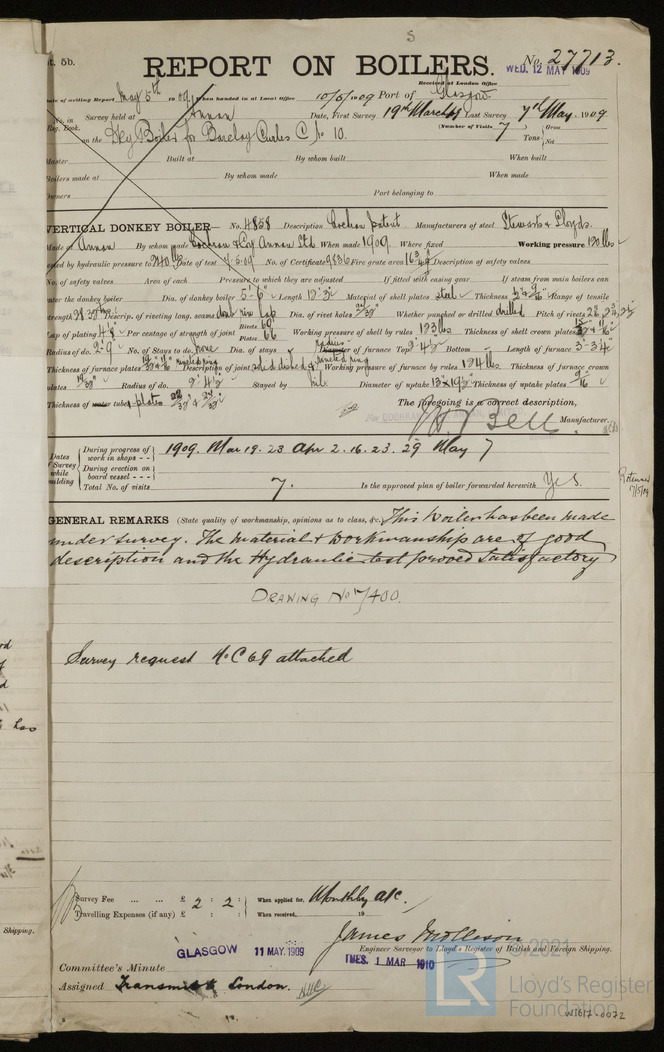 5
t. 5b.
REPORT ON BOILERS.
No. 27713.
Received at London Office
WED. 12 MAY 1909
Date of writing Report May 5th 1909 When handed in at Local Office 10/5/1909 Port of Glasgow.
No. in Survey held at Annan Date, First Survey 19th March Last Survey 7th May 1909
Reg. Book. (Number of Visits 7)
on the Dky Boiler for Barclay Curle & Co No 10. Tons Gross Net
Master Built at By whom built When built
Boilers made at By whom made When made
Owners Port belonging to
VERTICAL DONKEY BOILER— No. 4858 Description Cochran patent Manufacturers of steel Stewarts & Lloyds.
Made at Annan By whom made Cochran & Co Annan Ltd When made 1909 Where fixed Working pressure 120 lbs
tested by hydraulic pressure to 240 lb Date of test 7.5.09 No. of Certificate 9836 Fire grate area Description of safety valves
No. of safety valves Area of each Pressure to which they are adjusted If fitted with easing gear If steam from main boilers can
enter the donkey boiler Dia. of donkey boiler 5'-6" Length Material of shell plates steel Thickness Range of tensile
strength Descrip. of riveting long. seams doub riv lap Dia. of rivet holes Whether punched or drilled drilled Pitch of rivets
Lap of plating Per centage of strength of joint Rivets Plates Working pressure of shell by rules 123 lbs Thickness of shell crown plates
Radius of do. 2'-9" No. of Stays to do. none Dia. of stays radius of furnace Top 2'-4½" Bottom Length of furnace 3'-3¼"
Thickness of furnace plates Description of joint Working pressure of furnace by rules 124 lbs Thickness of furnace crown
plates 19/32" Radius of do. 2'-4½" Stayed by Nil. Diameter of uptake Thickness of uptake plates
Thickness of water tubes plates
The foregoing is a correct description,
J. Bell Manufacturer.
Dates of Survey while building
During progress of work in shops - - 1909. Mar 19. 23 Apr 2. 16. 23. 29 May 7
During erection on board vessel - - -
Total No. of visits 7. Is the approved plan of boiler forwarded herewith Yes.
Returned 17/5/09
GENERAL REMARKS (State quality of workmanship, opinions as to class, &c. This Boiler has been made
under survey. The material & workmanship are of good
description and the Hydraulic test proved satisfactory
DRAWING No 17400.
Survey request No C69 attached
Survey Fee ... ... £ 2 : 2 : When applied for, Monthly a/c.
Travelling Expenses (if any) £ : : When received, 19
James Mollison
Engineer Surveyor to Lloyd's Register of British and Foreign Shipping.
GLASGOW 11 MAY. 1909
TUES. 1 MAR 1910
Committee's Minute
Assigned Transmit to London.
Shipping.
LR
© 2021
Lloyd's Register
Foundation
W1617-0072